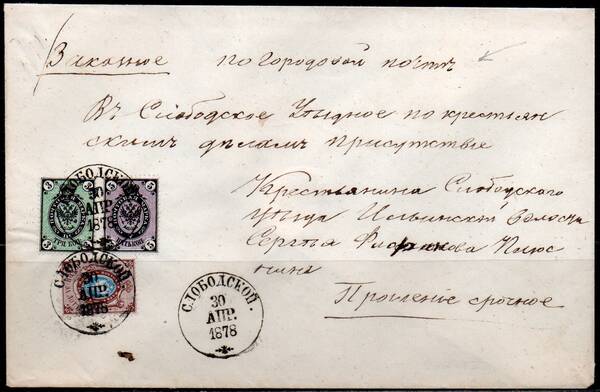 Заказное по городовой почтѣ
Въ Слободское Уѣздное по крестьян
скимъ дѣламъ присутствіе
Крестьянина Слободского
уѣзда Ильинской волости
Сергѣя
Прошеніе срочное
3 3 5 5
ТРИ КОП.
СЛОБОДСКОЙ
30
АПР.
1878
СЛОБОДСКОЙ
30
АПР.
1878
СЛОБОДСКОЙ
30
АПР.
1878